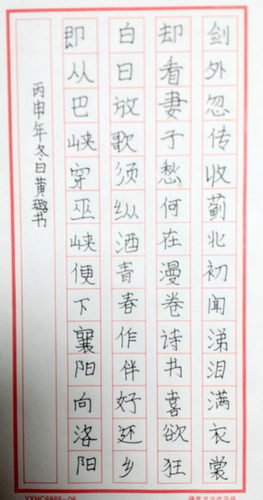 剑外忽传收蓟北初闻涕泪满衣裳
却看妻子愁何在漫卷诗书喜欲狂
白日放歌须纵酒青春作伴好还乡
即从巴峡穿巫峡便下襄阳向洛阳
丙申年冬日黄书